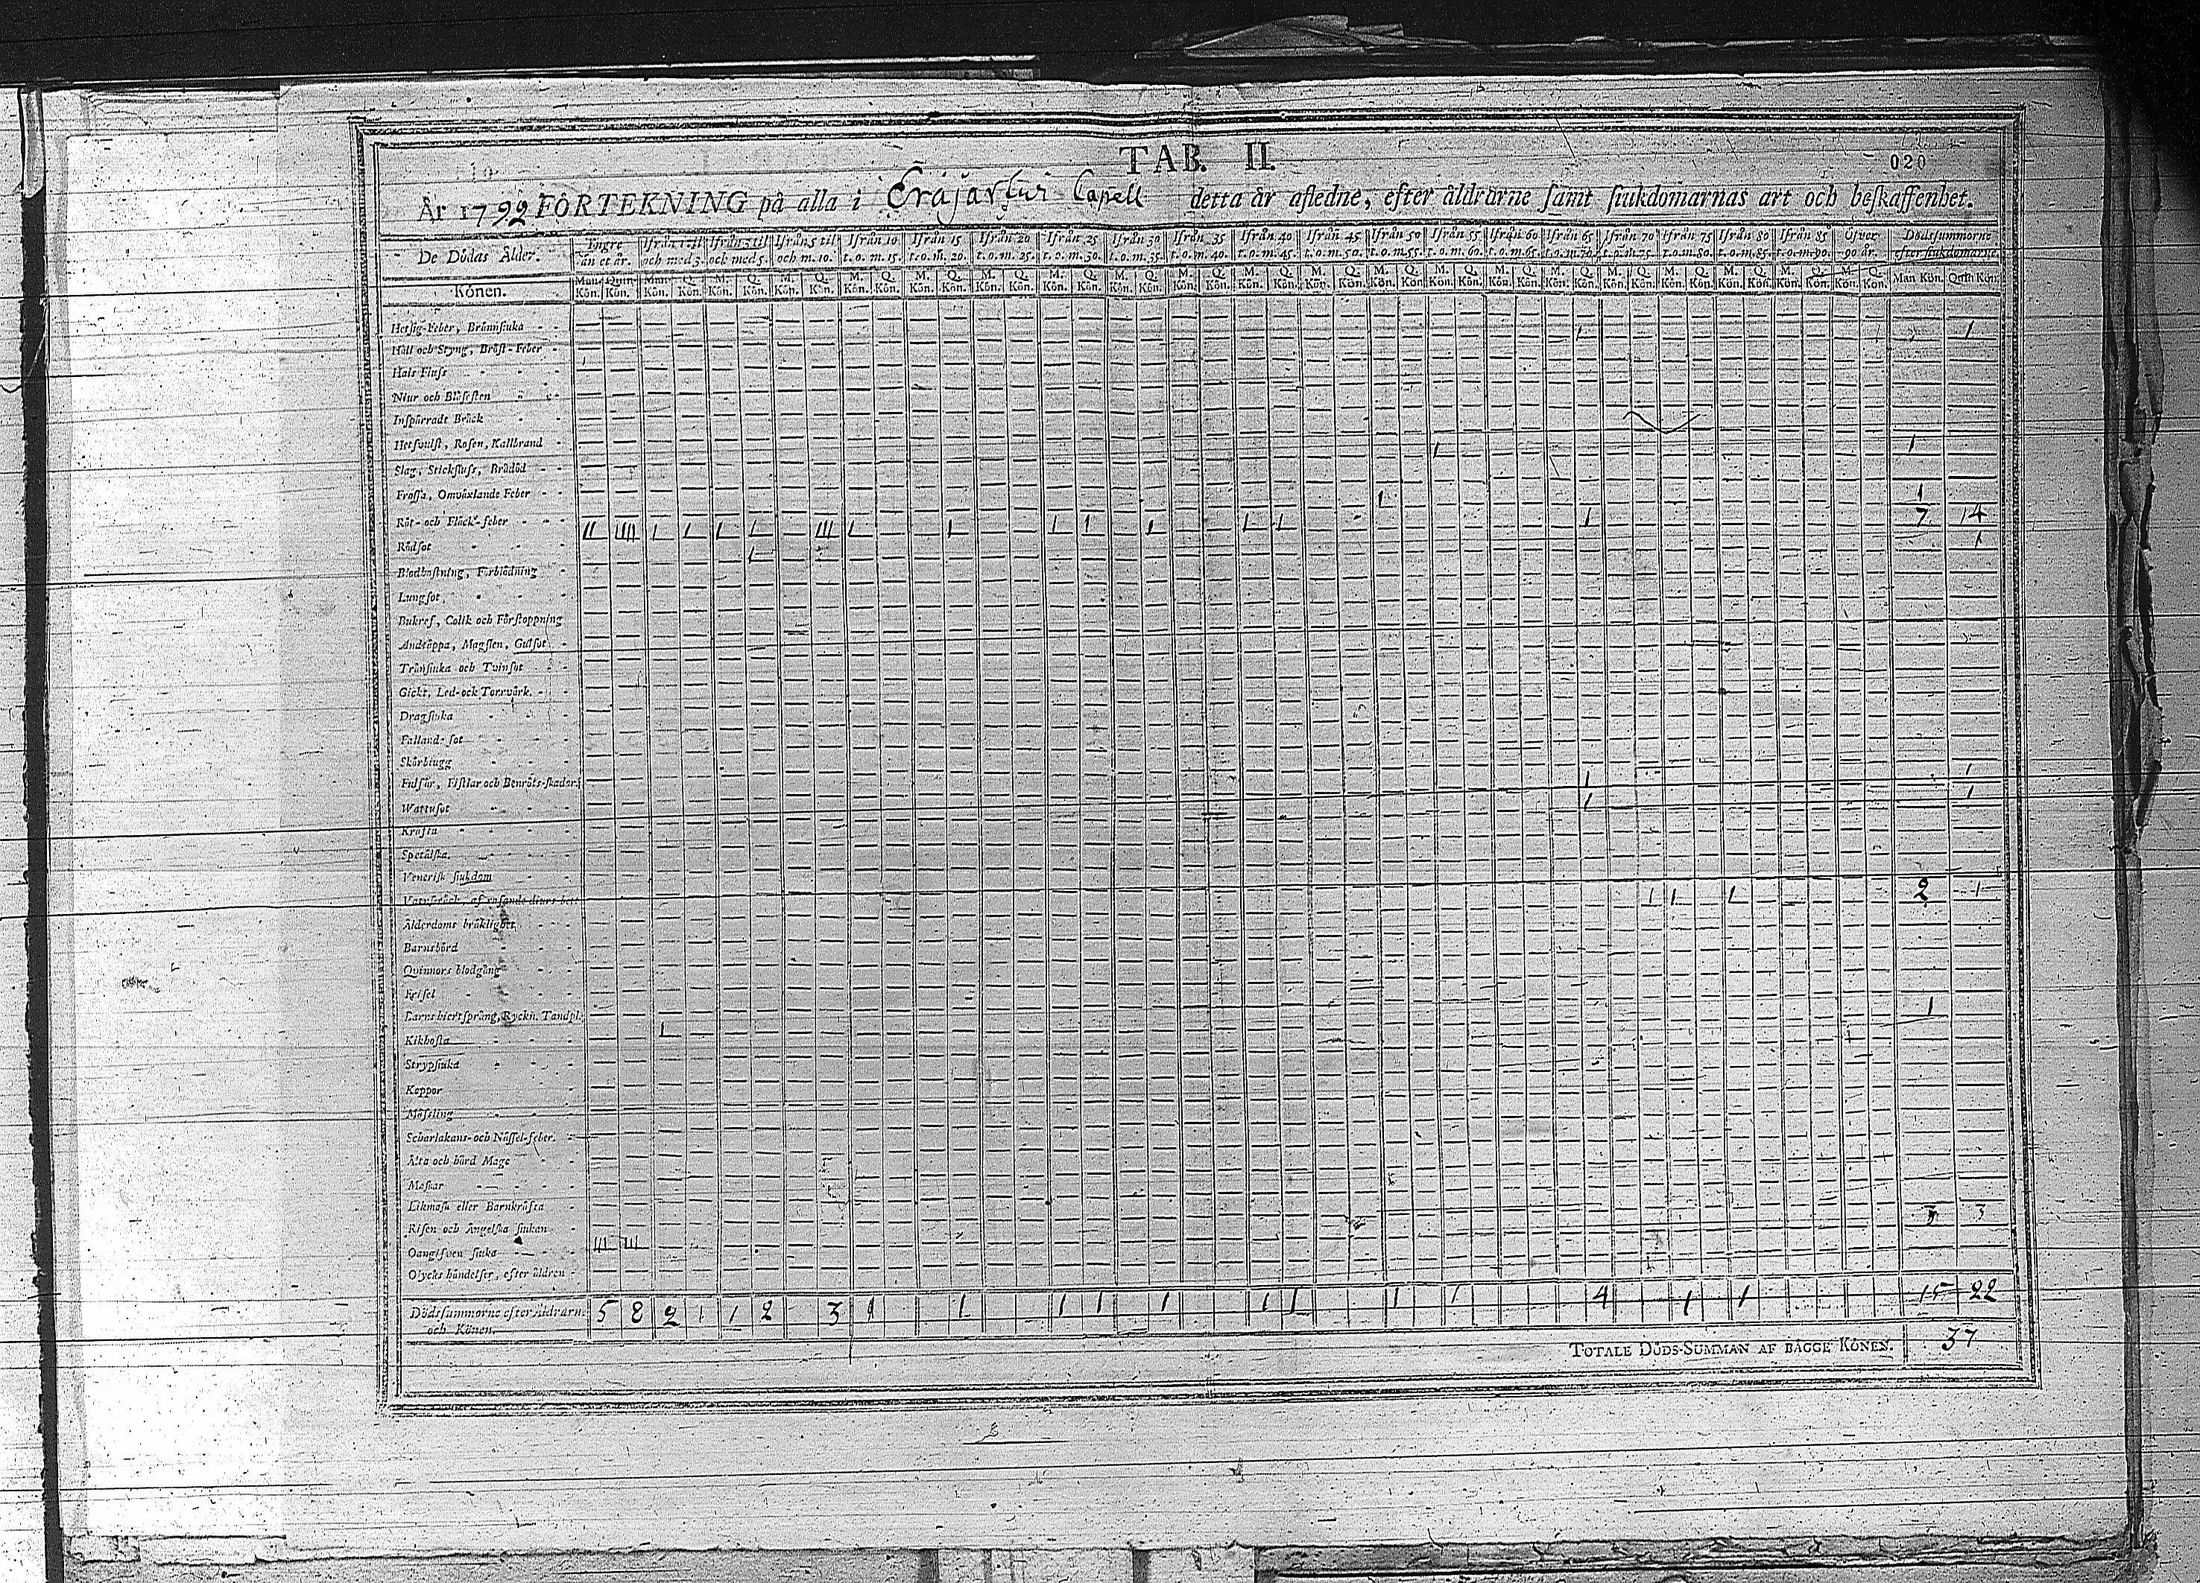 TAB. II.
020
År 1792 FÖRTEKNING på alla i Eräjärfwi Capell detta år afledne, efter åldrarne samt siukdomarnas art och beskaffenhet.
De Dödas Ålder. Yngre än et år. Ifrån 1 til och med 3. Ifrån 3 til och med 5. Ifrån 5 til och m. 10. Ifrån 10 t. o. m. 15. Ifrån 15 t. o. m. 20. Ifrån 20 t. o. m. 25. Ifrån 25 t. o. m. 30. Ifrån 30 t. o. m. 35. Ifrån 35 t. o. m. 40. Ifrån 40 t. o. m. 45. Ifrån 45 t. o. m. 50. Ifrån 50 t. o. m. 55. Ifrån 55 t. o. m. 60. Ifrån 60 t. o. m. 65. Ifrån 65 t. o. m. 70. Ifrån 70 t. o. m. 75. Ifrån 75 t. o. m. 80. Ifrån 80 t. o. m. 85. Ifrån 85 t. o. m. 90. Öfver 90 år. Dödssummorne efter siukdomarne.
Könen. Man-Kön. Quin-Kön. Man-Kön. Q. Kön. M. Kön. Q. Kön. M. Kön. Q. Kön. M. Kön. Q. Kön. M. Kön. Q. Kön. M. Kön. Q. Kön. M. Kön. Q. Kön. M. Kön. Q. Kön. M. Kön. Q. Kön. M. Kön. Q. Kön. M. Kön. Q. Kön. M. Kön. Q. Kön. M. Kön. Q. Kön. M. Kön. Q. Kön. M. Kön. Q. Kön. M. Kön. Q. Kön. M. Kön. Q. Kön. M. Kön. Q. Kön. M. Kön. Q. Kön. M. Kön. Q. Kön. Man Kön. Quin Kön.
Hetsig-Feber, Brännsiuka 1 1
Håll och Styng, Bröst-Feber
Hals Fluss
Niur och Blåsesten
Inspärradt Bråck
Hetsvulst, Rosen, Kallbrand 1 1
Slag, Stickfluss, Brådöd
Frossa, Omväxlande Feber 1 1
Röt- och Fläck-feber II IIII I I I I III I I I I I I I I 7 14
Rödsot I 1
Blodhostning, Förblödning
Lungsot
Bukref, Colik och Förstoppning
Andtäppa, Magsten, Gulsot
Trånsiuka och Tvinsot
Gickt, Led- och Torrvärk.
Dragsiuka
Falland-sot
Skörbiugg
Fulsår, Fistlar och Benröts-skador 1 1
Wattusot 1 1
Kräfta
Spetälska.
Venerisk siukdom
Vatuskräck af rasande diurs bett 1 1 1 2 1
Ålderdoms bräklighet
Barnsbörd
Quinnors blodgång
Frisel
Barns hiertsprång, Ryckn. Tandpl. 1
Kikhosta 1
Strypsiuka
Koppor
Mässling
Scharlakans- och Nässel-feber.
Älta och hård Mage
Maskar
Likmask eller Barnkräfta
Risen och Ängelska siukan 3 3
Oangifven siuka III III
Olycks händelser, efter åldren
Dödssummorne efter Åldrarne 5 8 2 1 1 2 3 1 1 1 1 1 1 1 1 1 4 1 1 15 22
och Könen.
TOTALE DÖDS-SUMMAN AF BÄGGE KÖNEN. 37